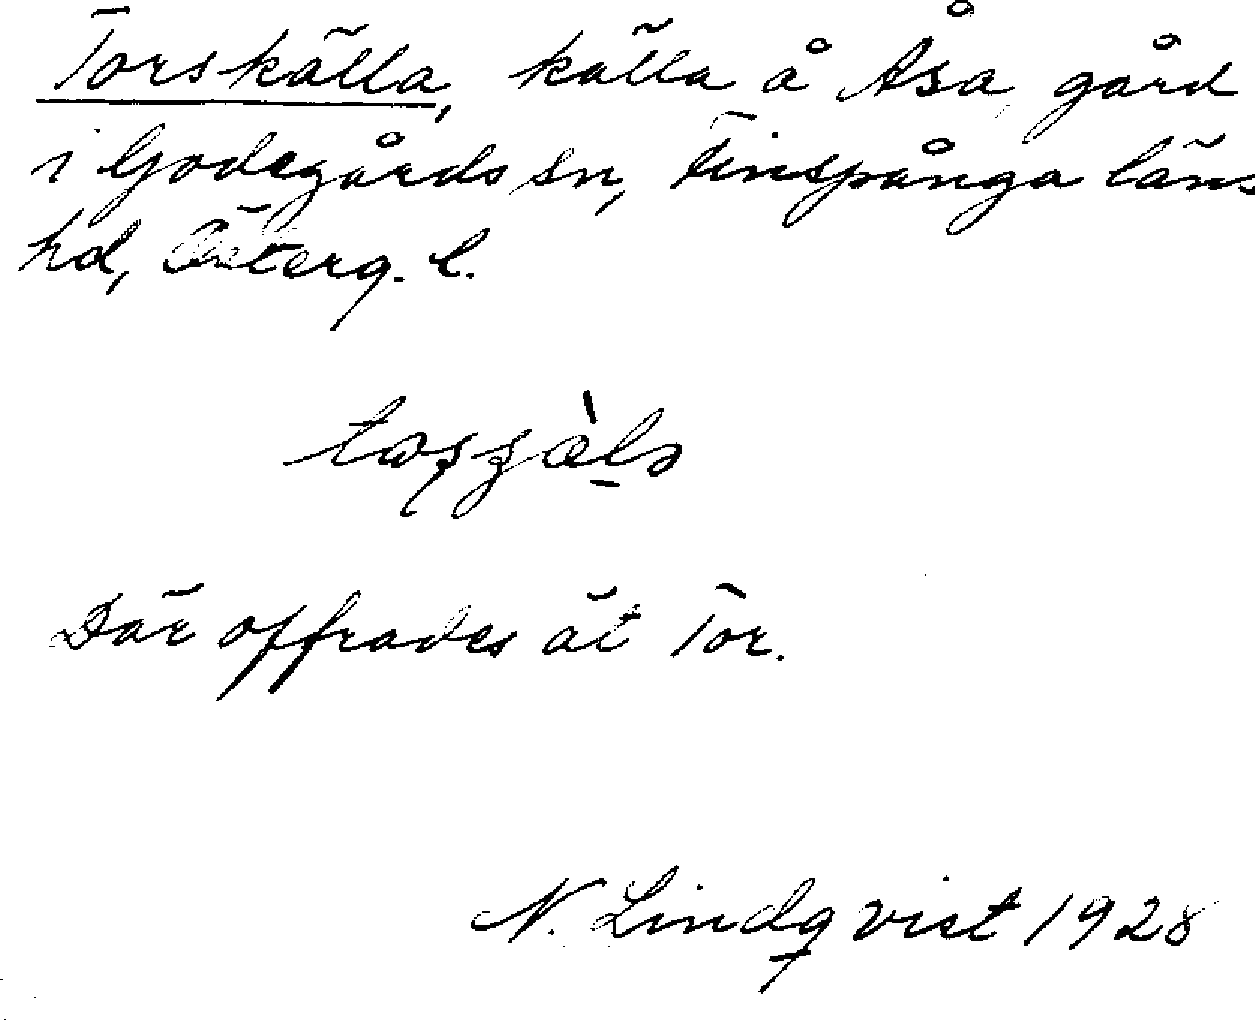 Torskälla, källa å Åsa, gård
i Godegårds sn, Finspånga läns
hd, Österg. l.
Där offrades åt Tor.
N. Lindqvist 1928